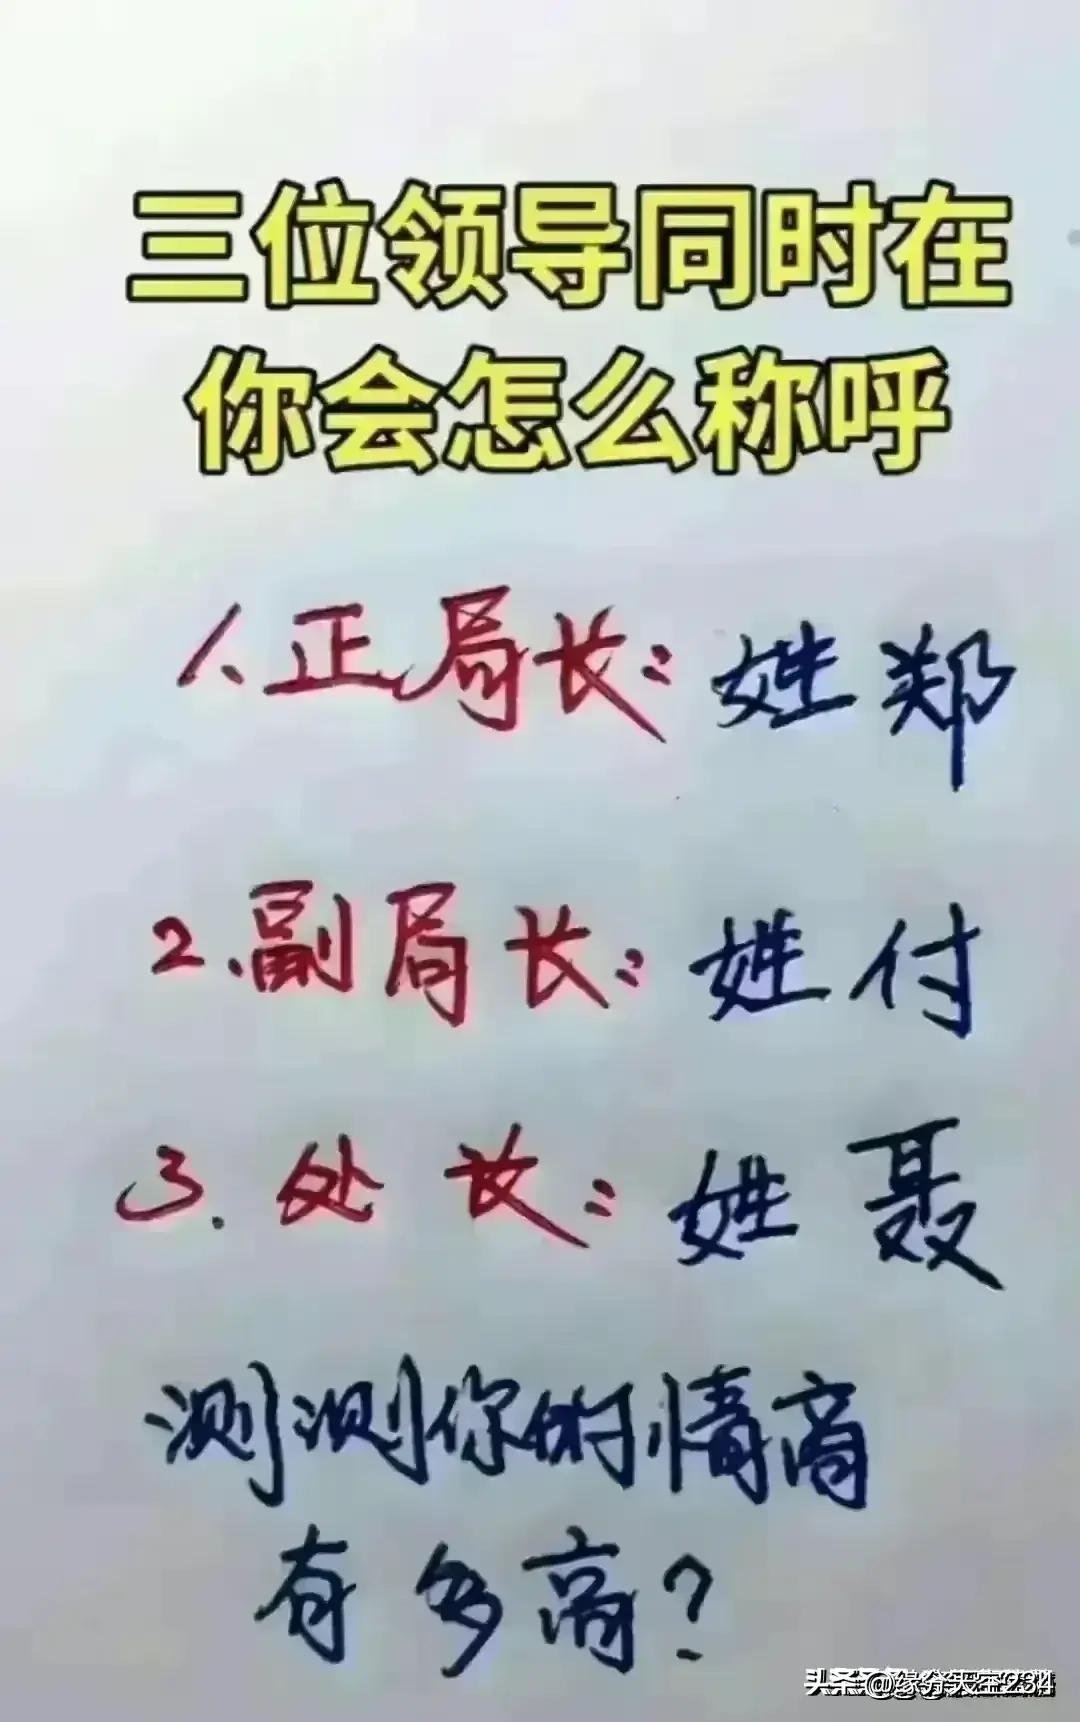 三位领导同时在
你会怎么称呼
1、正局长：姓郑
2.副局长：姓付
3.处长：姓聂
测测你的情商
有多高？
头条 @缘分天空234